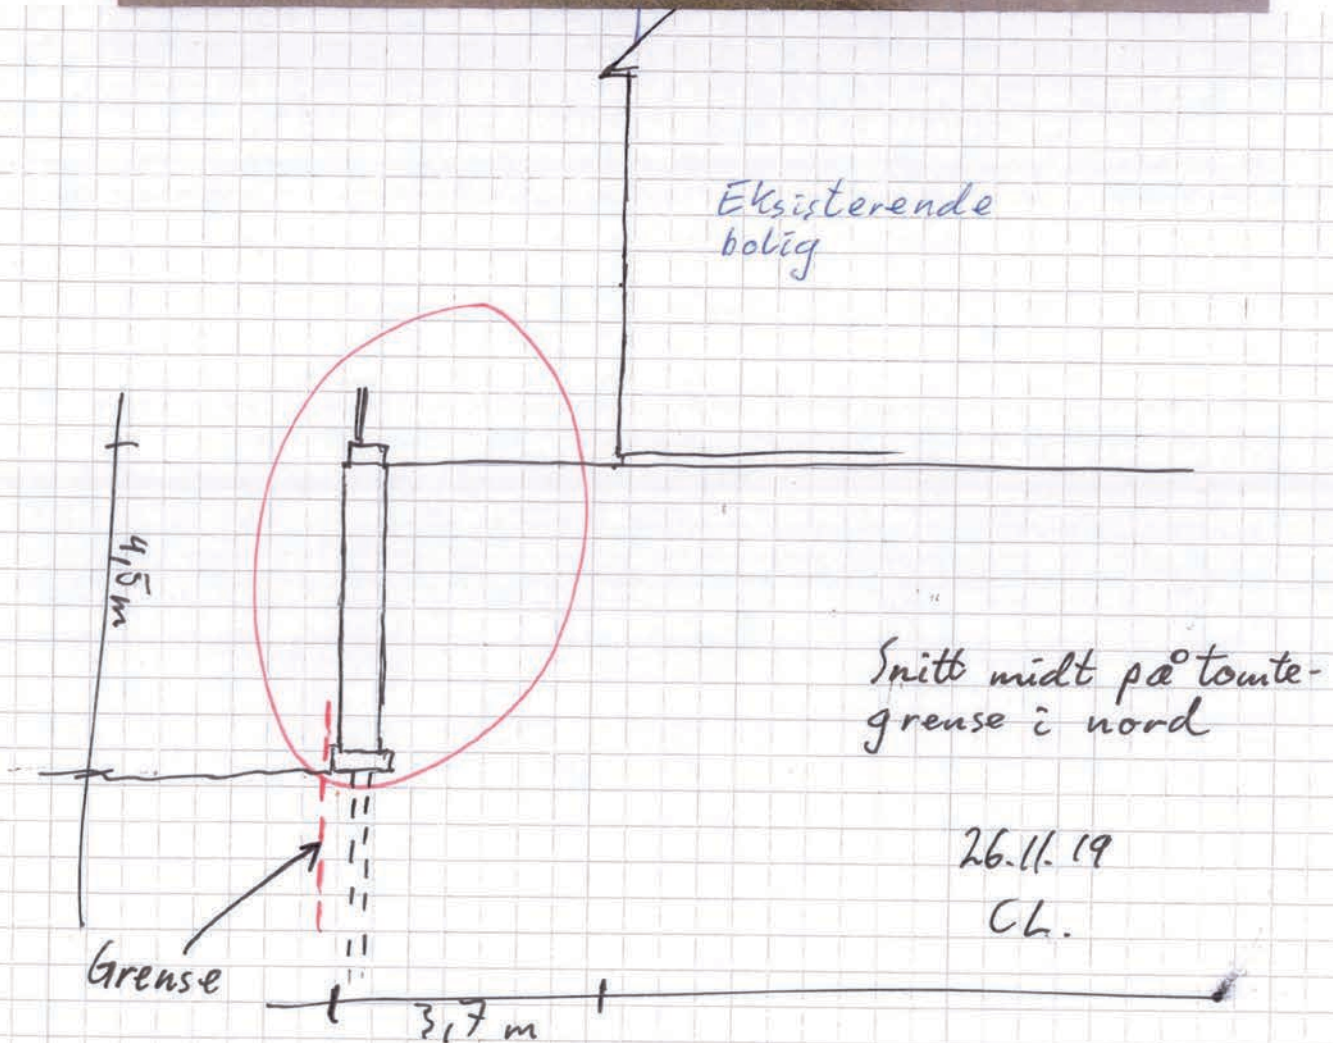 Eksisterende
bolig
4,5 m
Snitt midt på tomte-
grense i nord
26.11.19
CL.
Grense
3,7 m